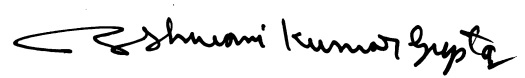 Ashwani Kumar Gupta